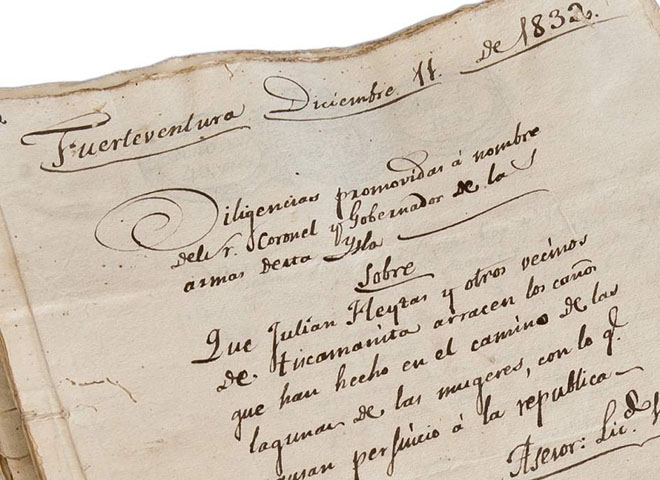 Fuerteventura Diciembre 11. de 1832.
Diligencias promovidas á nombre
del Sr. Coronel y Gobernador de las
armas de esta Ysla
Sobre
Que Julian Fleytas y otros vecinos
de tiscamanita arracen los caños
que han hecho en el camino de las
lagunas de las mugeres, con lo q.
causan persuicio á la republica
Asesor: Lic.d